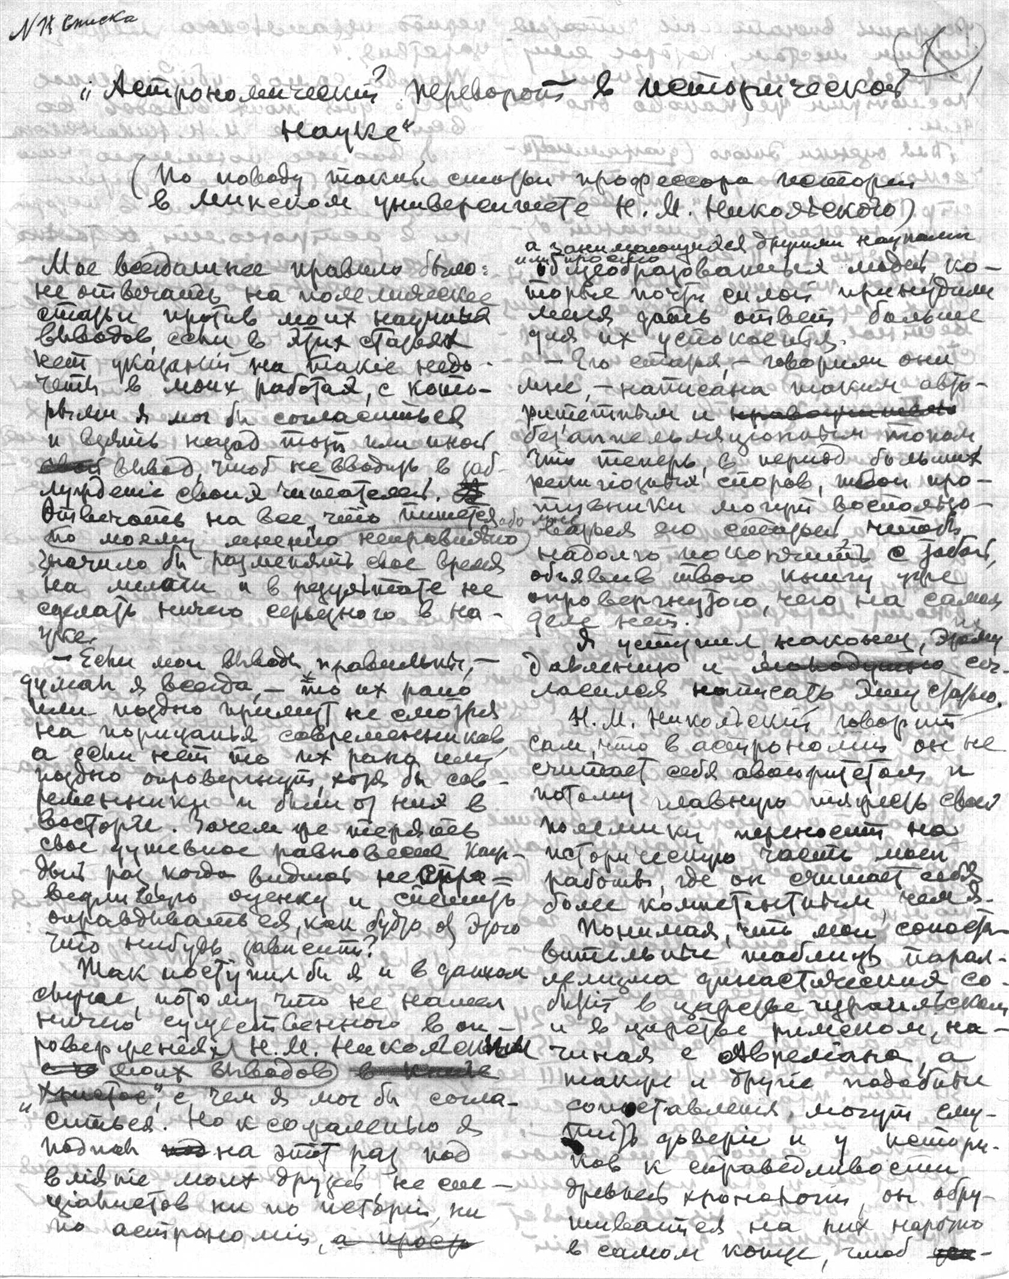 № К списка
1
„Астрономический переворот в исторической
науке“
(По поводу такой статьи профессора истории
в Минском университете Н. М. Никольского)
Мое всегдашнее правило было:
не отвечать на полемические
статьи против моих научных
выводов если в этих статьях
нет указаний на такие недо-
четы в моих работах, с кото-
рыми я мог бы согласиться
и взять назад тот или иной
вывод, чтоб не вводить в заб-
луждение своих читателей.
Отвечать на все, что пишется
по моему мнению неправильно
значило бы разменять свое время
на мелочи и в результате не
сделать ничего серьезного в на-
уке.
— Если мои выводы правильны, —
думал я всегда, — то их рано
или поздно примут не смотря
на порицанья современников,
а если нет то их рано или
поздно опровергнут, хотя бы сов-
ременники и были от них в
восторге. Зачем же терять
свое душевное равновесие каж-
дый раз когда видишь неспра-
ведливую оценку и спешить
оправдываться, как будто от этого
что нибудь зависит?
Так поступил бы я и в данном
случае, потому что не нашел
ничего существенного в оп-
ровержениях Н. М. Никольским
моих выводов в книге
„Христос“, с чем я мог бы согла-
ситься. Но к сожаленью я
попал на этот раз под
влияніе моих друзей не спе-
циалистов ни по исторіи, ни
по астрономіи, а просто
а занимающихся другими науками
или просто
общеобразованных людей, ко-
торые почти силой принудили
меня дать ответ больше
для их успокоенья.
— Его статья, — говорили они
мне, — написана таким авто-
ритетным и
безаппеляционным тоном,
что теперь, в период больших
религиозных споров, твои про-
тивники могут воспользо-
ваться его статьей, чтобы
наболго покончить с тобой,
объявив твою книгу уже
опровергнутою, чего на самом
деле нет.
Я уступил наконец, этому их
давлению и согласился
написать эту статью.
Н. М. Никольский говорит
сам, что в астрономіи он не
считает себя авторитетом и
потому главную тяжесть своей
полемики переносит на
историческую часть моей
работы, где он считает себя
более компетентным, чем я.
Понимая, что мои сопоста-
вительные таблицы парал-
лелизма династических со-
бытий в царстве израильском
и в царстве римском, на-
чиная с Аврелиана, а
также и другие подобные
сопоставления, могут сму-
тить доверіе и у истори-
ков к справедливости
древней хронологіи, он обру-
шивается на них нарочно
в самом конце, чтоб